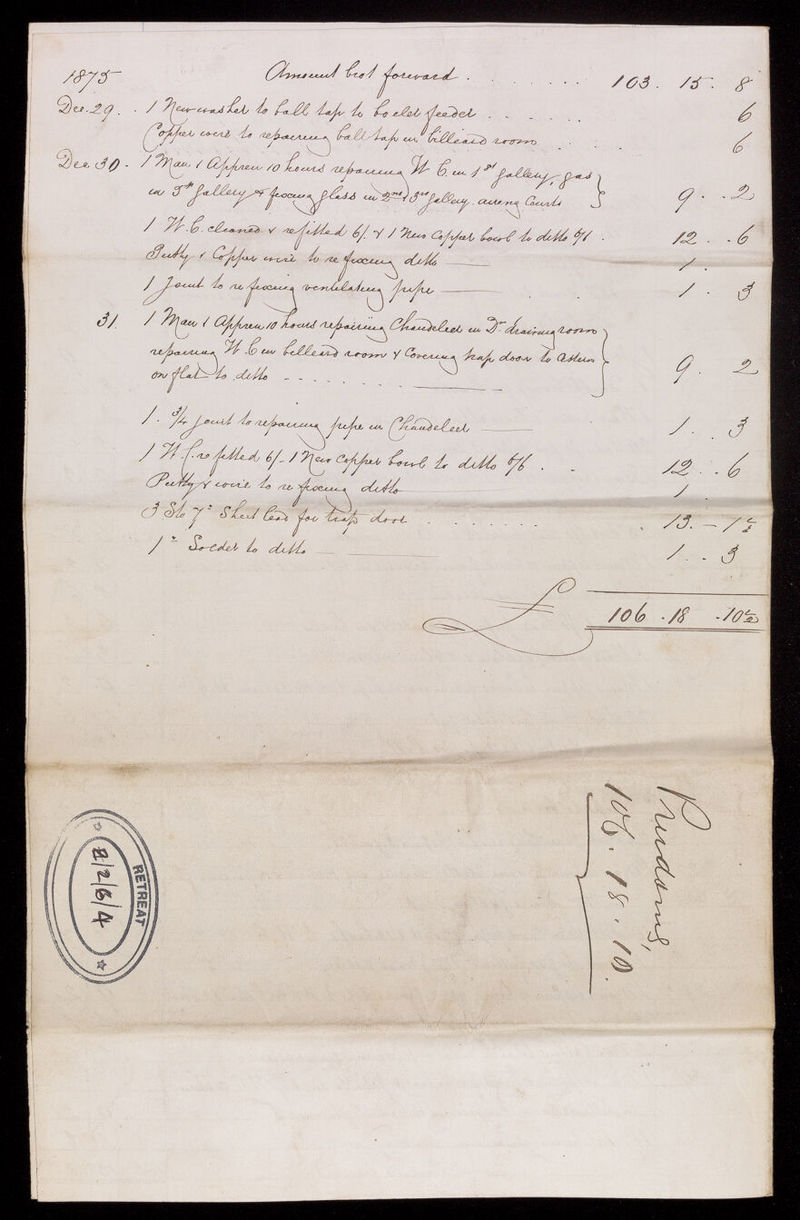 1875 Amount brot forward . . . . . . 103. 15. 8
Dec. 29. . 1 New washer to ball tap to boiler feeder . . . . . . 6
Copper wire to repairing ball tap in billeard room . . . 6
Dec. 30. 1 Man 1 Appren 10 hours repairing W C in 1st Gallery, gas
in 3rd Gallery & fixing glass in 2nd & 3rd Gallery airing Courts 9. . 2
1 W.C. cleaned & refitted 6/. & 1 New Copper bowl to ditto 6/6 . 12. . 6
Putty & Copper wire to re fixing ditto 1 .
1 Joint to re fixing ventilating pipe . . 1. 3
31. 1 Man 1 Appren 10 hours repairing Chandelier in Dr. drawing room
repairing W.C in billeard room & Covering trap door to
on flat to ditto - - - - - - - 9. 2
1. 3/4 joint to repairing pipe in Chandelier 1. . 3
1 W.C. refitted 6/- 1 New Copper bowl to ditto 6/6 . . 12 . . 6
Putty & wire to re fixing ditto 1 .
3 Sto 7 Sheet lead for trap door . . . . . . . 13. - 1 1/2
1 Solder to ditto 1 . . 3
£ 106 . 18 . 10 1/2
Purdoms,
106. 18. 10.
RETREAT
8/2/6/4